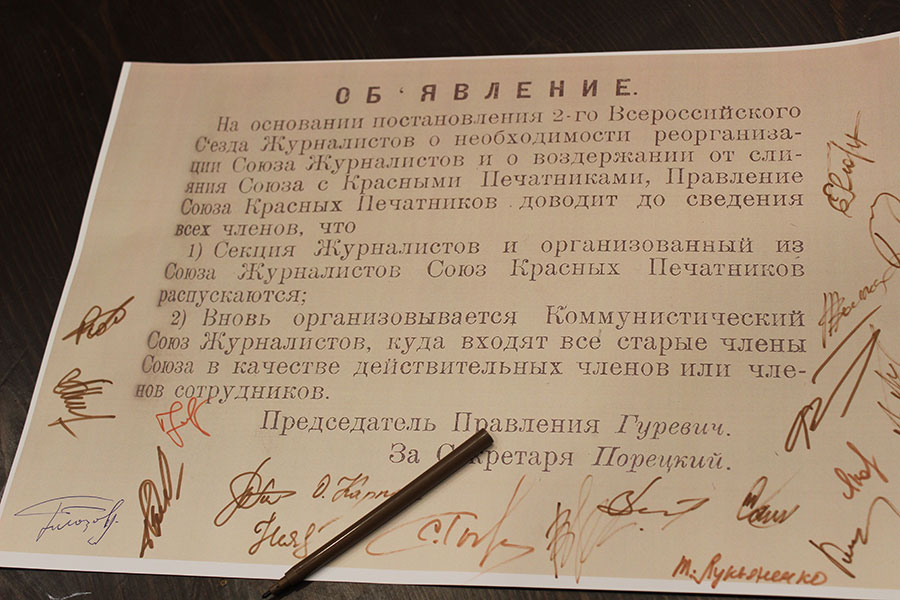 ОБ‘ЯВЛЕНИЕ.
На основании постановления 2-го Всероссийского
С‘езда Журналистов о необходимости реорганиза-
ции Союза Журналистов и о воздержании от сли-
яния Союза с Красными Печатниками, Правление
Союза Красных Печатников доводит до сведения
всех членов, что
1) Секция Журналистов и организованный из
Союза Журналистов Союз Красных Печатников
распускаются;
2) Вновь организовывается Коммунистический
Союз Журналистов, куда входят все старые члены
Союза в качестве действительных членов или чле-
нов сотрудников.
Председатель Правления Гуревич.
За Секретаря Порецкий.
М. Лукьяненко